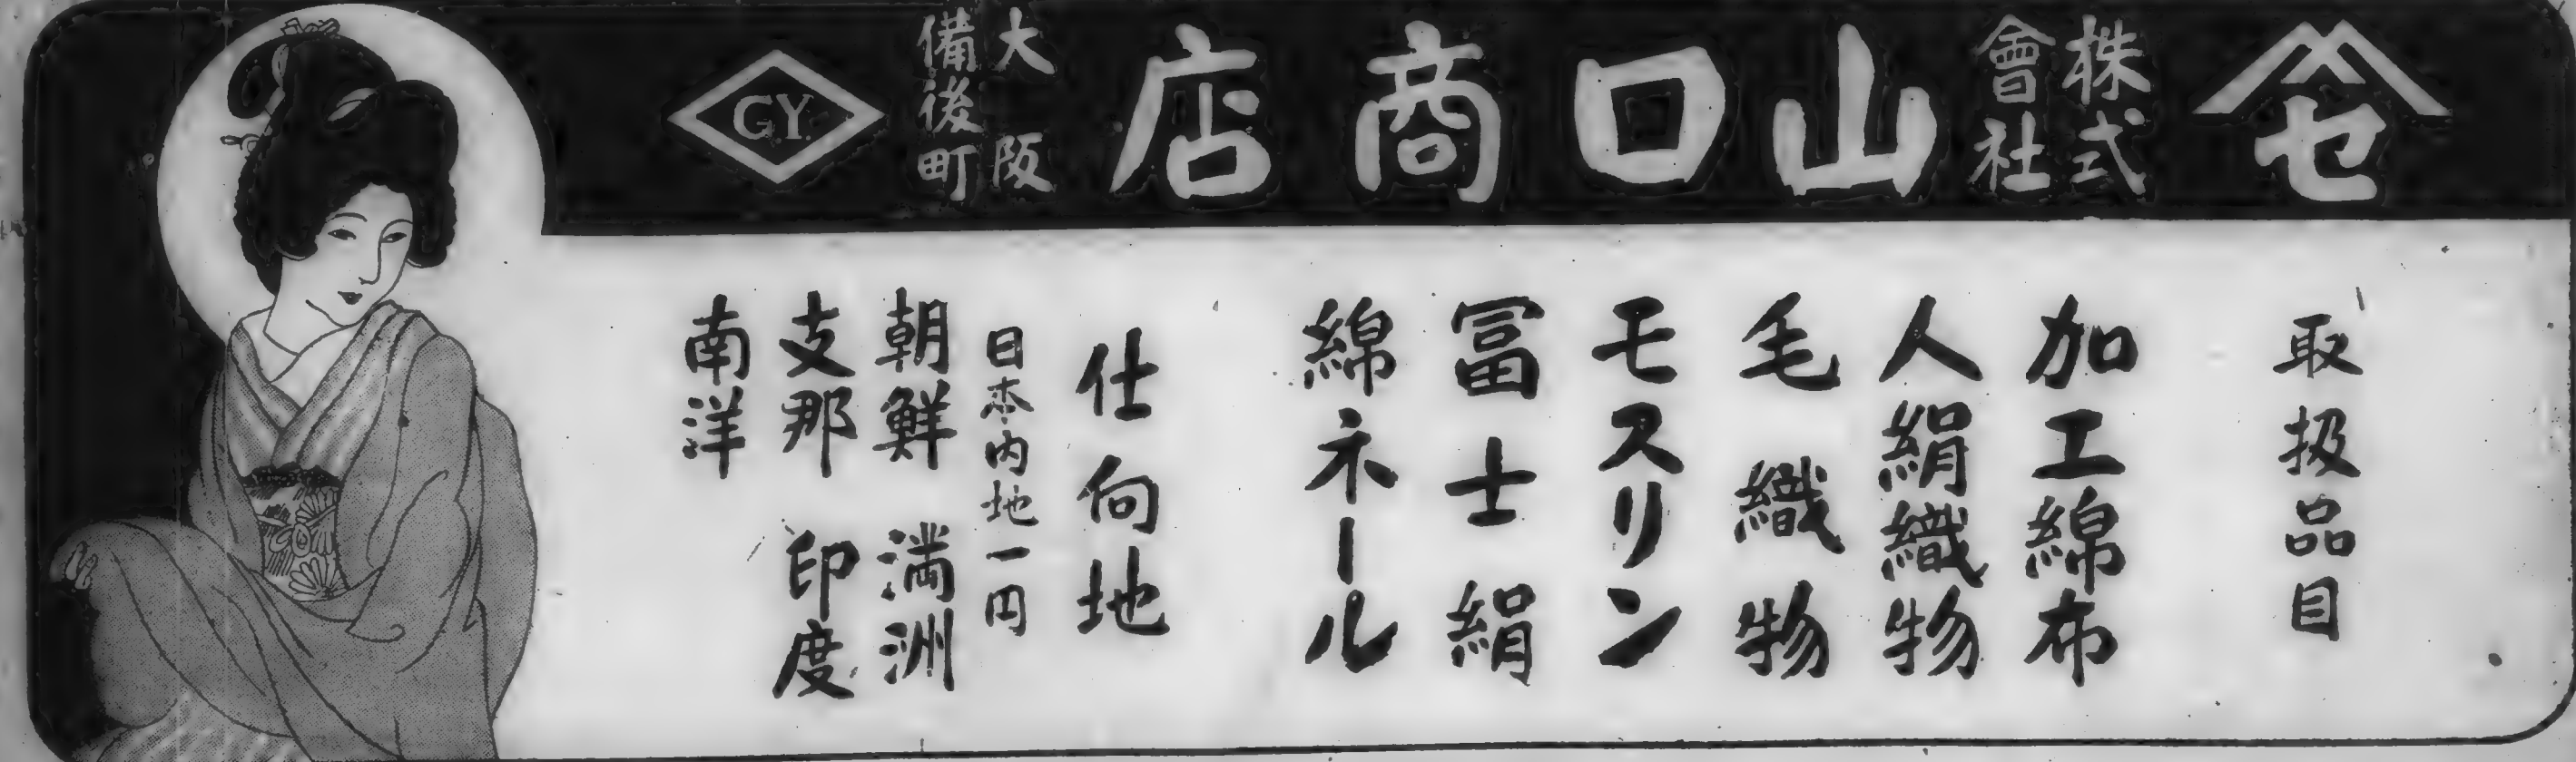 セ
株式
會社
山口商店
大阪
備後町
GY
取扱品目
加工綿布
人絹織物
毛織物
モスリン
冨士絹
綿ネール
仕向地
日本内地一円
朝鮮 満洲
支那 印度
南洋